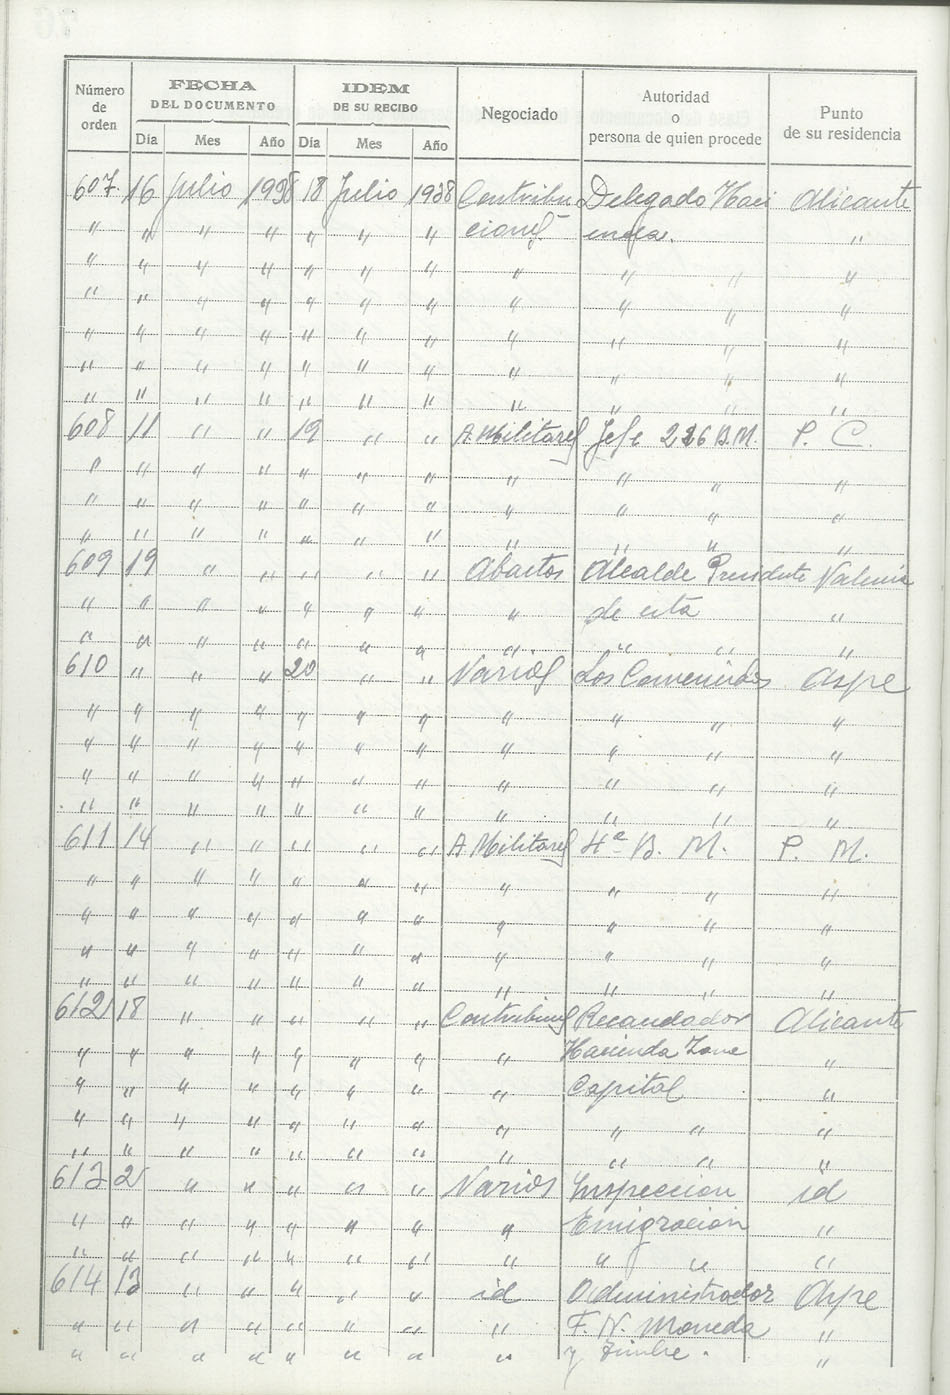 Número de orden | FECHA DEL DOCUMENTO | IDEM DE SU RECIBO | Negociado | Autoridad o persona de quien procede | Punto de su residencia
Día | Mes | Año | Día | Mes | Año
607. 16 Julio 1938 18 Julio 1938 Contribu Delegado Haci Alicante
" " " " " " " ciones enda. "
" " " " " " " " " " "
" " " " " " " " " " "
" " " " " " " " " " "
" " " " " " " " " " "
" " " " " " " " " " "
608 11 " " 19 " " A. Militares Jefe 226 B.M. P. C.
" " " " " " " " " " "
" " " " " " " " " " "
" " " " " " " " " " "
609 19 " " " " " Abastos Alcalde Presidente Valencia
" " " " " " " " de esta "
" " " " " " " " " " "
610 " " " 20 " " Varios Los Aspe
" " " " " " " " " " "
" " " " " " " " " " "
" " " " " " " " " " "
" " " " " " " " " " "
611 14 " " " " " A. Militares 4ª B. M. P. M.
" " " " " " " " " " "
" " " " " " " " " " "
" " " " " " " " " " "
" " " " " " " " " " "
612 18 " " " " " Recaudador Alicante
" " " " " " " " Hacienda Zona "
" " " " " " " " Capital "
" " " " " " " " " " "
" " " " " " " " " " "
613 " " " " " Varios Inspeccion id
" " " " " " " " Emigracion "
" " " " " " " " " " "
614 13 " " " " " id Administrador Aspe
" " " " " " " " F. N. Moneda "
" " " " " " " " y Timbre. "